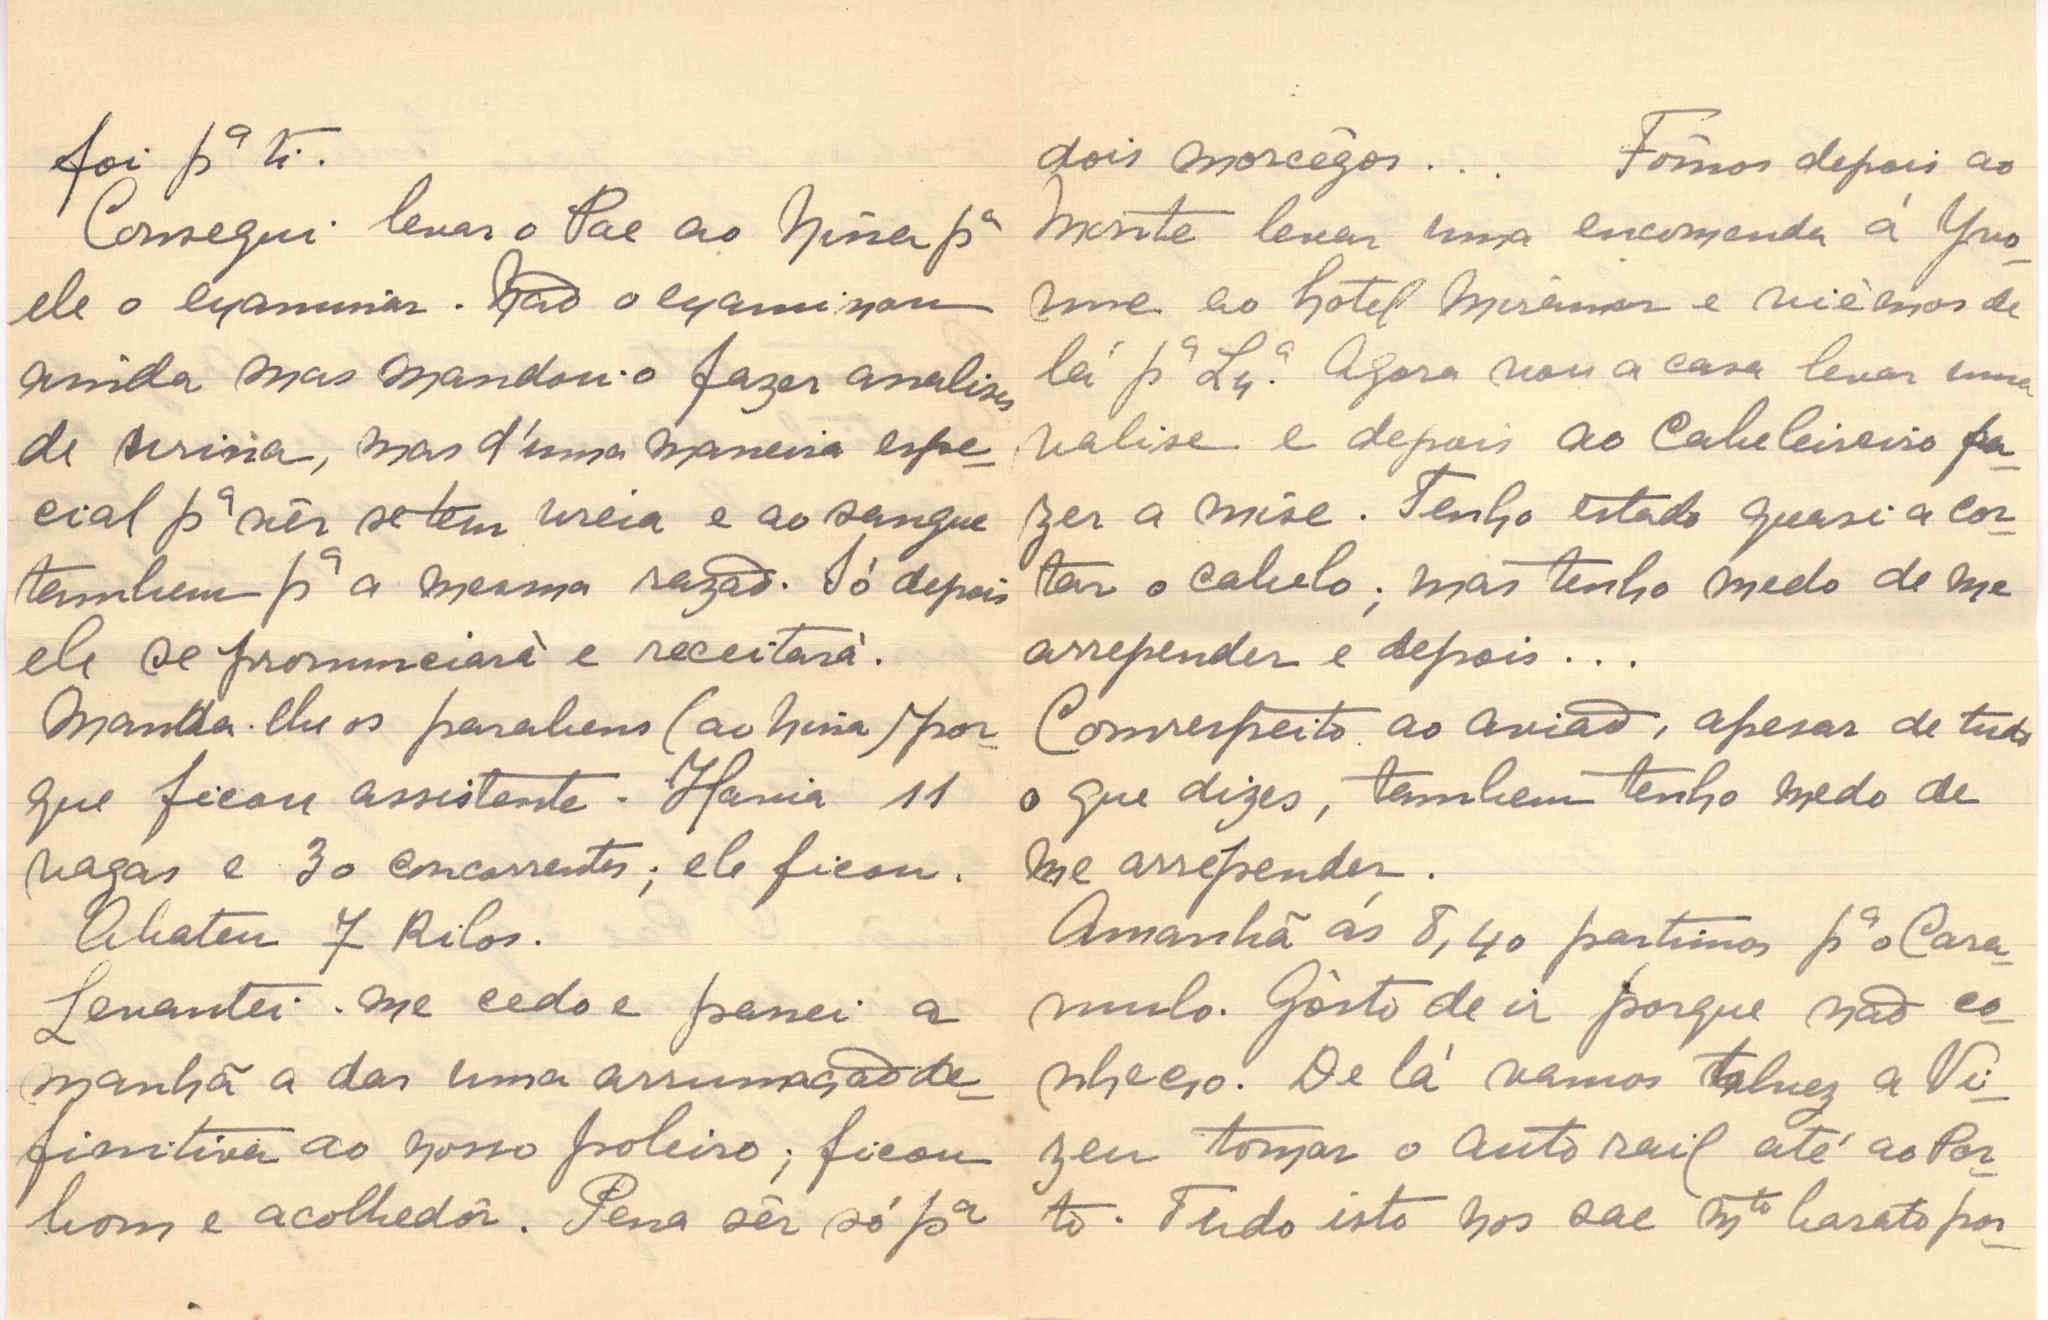 foi pª ti.
Consegui levar o Pae ao Nina pª
ele o examinar. Não o examinou
ainda mas mandou-o fazer analises
de urina, mas d'uma maneira espe-
cial pª vêr se tem ureia e ao sangue
tambem pª a mesma razão. Só depois
ele se pronunciará e receitará.
Manda-lhe os parabens (ao Nina) por-
que ficou assistente. Havia 11
vagas e 30 concorrentes; ele ficou.
Abateu 7 Kilos.
Levantei-me cedo e passei a
manhã a dar uma arrumação de-
finitiva ao nosso poleiro; ficou
bom e acolhedôr. Pena sêr só pª
dois morcêgos... Fômos depois ao
Monte levar uma encomenda á Yvo-
nne ao hotel Miramar e viémos de
lá pª Lxª. Agora vou a casa levar uma
valise e depois ao cabeleireiro fa-
zer a mise. Tenho estado quasi a cor-
tar o cabelo; mas tenho medo de me
arrepender e depois...
Com respeito ao avião, apesar de tudo
o que dizes, tambem tenho medo de
me arrepender.
Amanhã ás 8,40 partimos pª o Cara-
mulo. Gósto de ir porque não co-
nheço. De lá vamos talvez a Vi-
zeu tomar o auto rail até ao Por-
to. Tudo isto nos sae mto barato por-